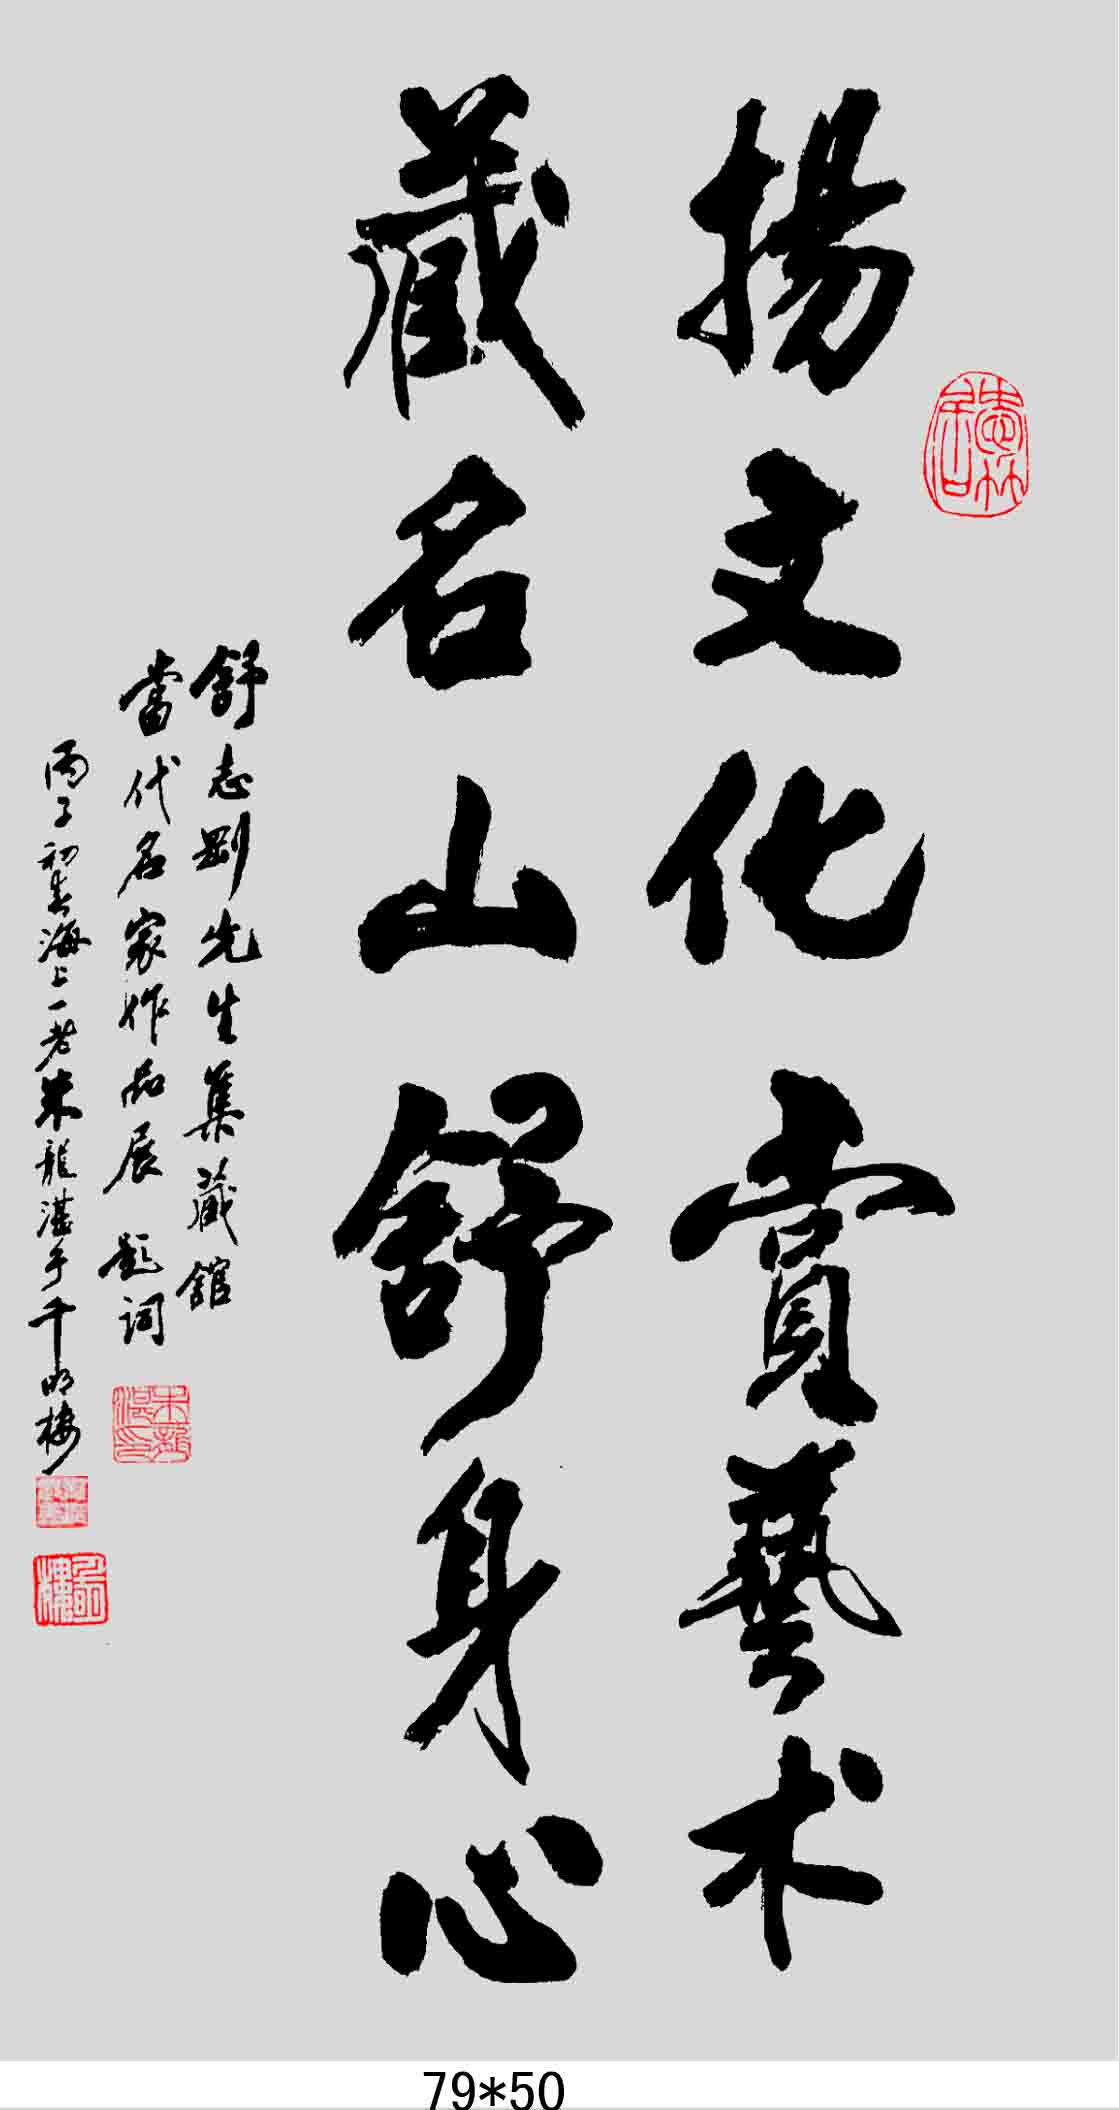 揚文化賞藝术
藏名山舒身心
舒志剛先生集藏館
當代名家作品展 題詞
丙子初春海上一老朱龍湛于千明樓
79*50